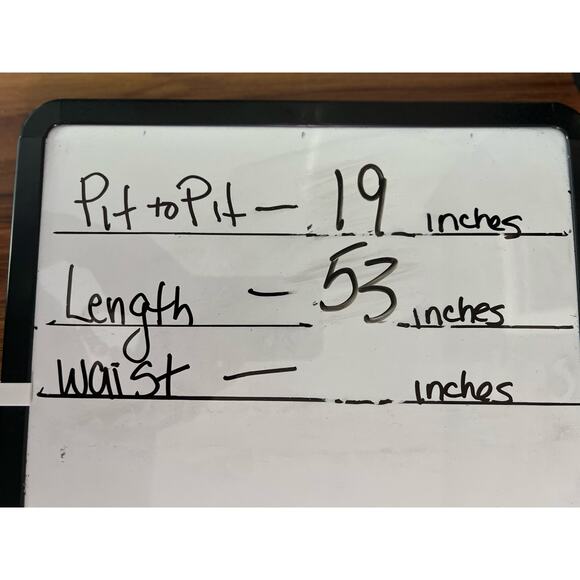 Pit to Pit — 19 inches
Length — 53 inches
Waist — inches